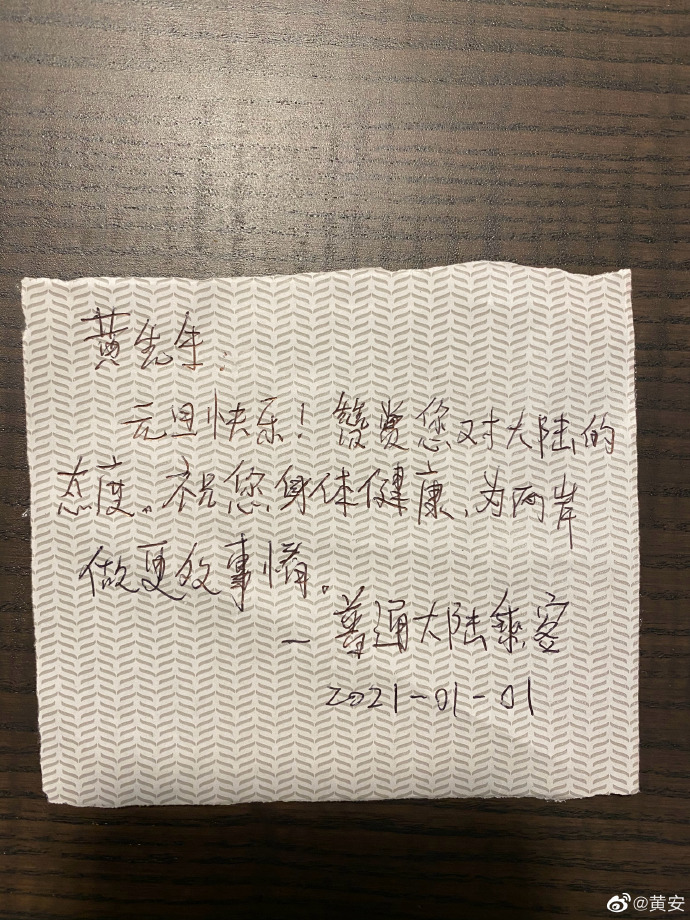 黄先生:
元旦快乐!赞赏您对大陆的
态度。祝您身体健康、为两岸
做更多事情。
一普通大陆乘客
2021-01-01
@黄安